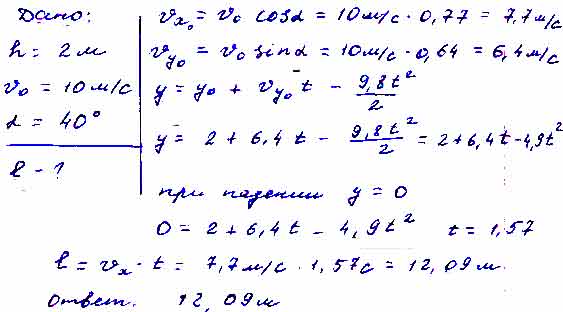 Дано:
h = 2 м
v₀ = 10 м/с
α = 40°
l - ?
vₓ₀ = v₀ cosα = 10 м/с · 0,77 = 7,7 м/с
v_y₀ = v₀ sinα = 10 м/с · 0,64 = 6,4 м/с
y = y₀ + v_y₀ t - 9,8t²/2
y = 2 + 6,4t - 9,8t²/2 = 2 + 6,4t - 4,9t²
при падении y = 0
0 = 2 + 6,4t - 4,9t² t = 1,57
l = vₓ · t = 7,7 м/с · 1,57с = 12,09 м.
ответ. 12,09 м